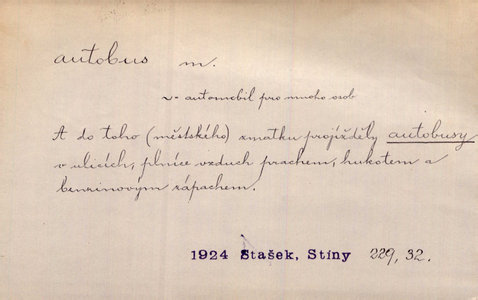 autobus m.
= automobil pro mnoho osob
A do toho (městského) zmatku projížděly autobusy
v ulicích, plníce vzduch prachem, hukotem a
benzinovým zápachem.
1924 Stašek, Stíny 229, 32.